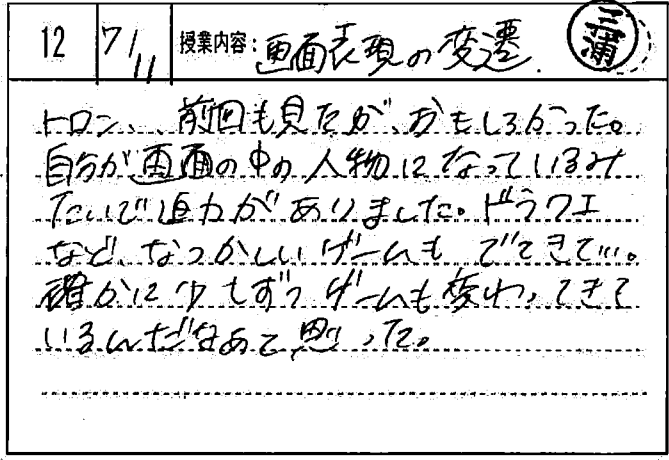 12 7/11 授業内容: 画面表現の変遷. 三浦
トロン、、前回も見たが、おもしろかった。
自分が画面の中の人物になっているみ
たいで迫力がありました。ドラクエ
など、なつかしいゲームもでてきて…。
確かに少しずつゲームも変わってきて
いるんだなあと思った。